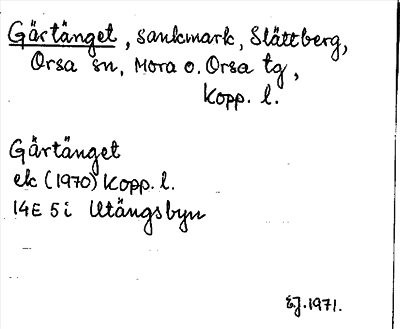 Gärtänget, sankmark, Slättberg,
Orsa sn, Mora o. Orsa tg,
Kopp. l.
Gärtänget
ek (1970) Kopp. l.
14E 5i Utängsbyn
EJ. 1971.